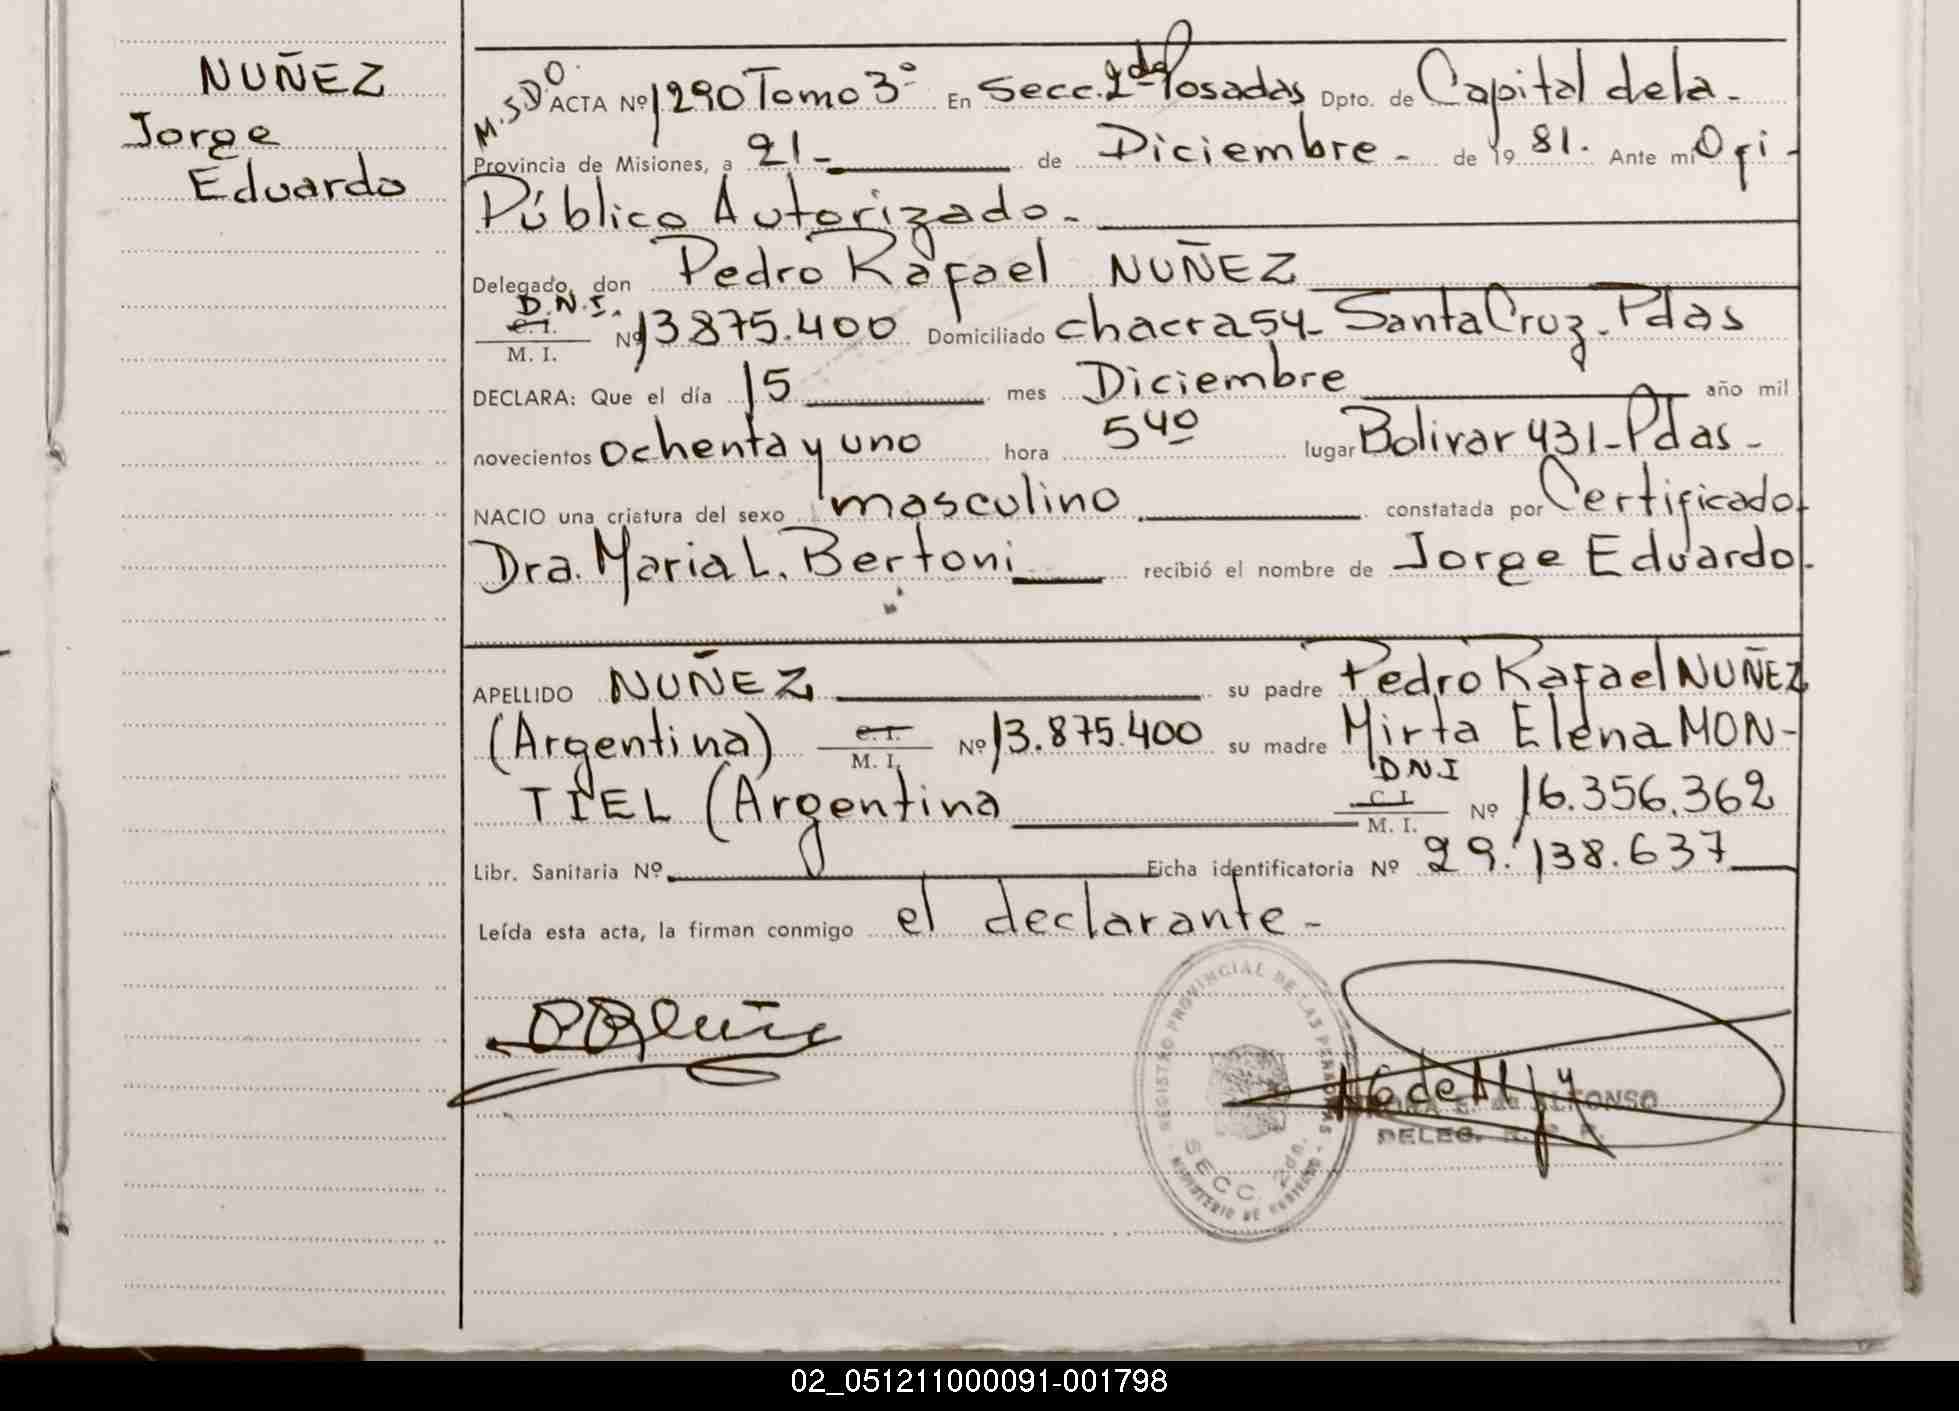 NUÑEZ
Jorge
Eduardo
M.S.D.O. ACTA Nº 1290 Tomo 3º En Secc. 2da Posadas Dpto. de Capital de la-
Provincia de Misiones, a 21- de Diciembre- de 1981. Ante mi Ofi-
Público Autorizado-
Delegado, don Pedro Rafael NUÑEZ
D.N.I.
C.I.
M. I. Nº 13.875.400 Domiciliado chacra 54- Santa Cruz- Pdas
DECLARA: Que el día 15 mes Diciembre año mil
novecientos ochenta y uno hora 5 40 lugar Bolivar 431-Pdas-
NACIO una criatura del sexo masculino constatada por Certificado
Dra. Maria L. Bertoni recibió el nombre de Jorge Eduardo.
APELLIDO NUÑEZ su padre Pedro Rafael NUÑEZ
(Argentina) C.I. M. I. Nº 13.875.400 su madre Mirta Elena MON-
TIEL (Argentina DNI C.I. M. I. Nº 16.356.362
Libr. Sanitaria Nº Ficha identificatoria Nº 29.138.637
Leída esta acta, la firman conmigo el declarante-
REGISTRO PROVINCIAL DE LAS PERSONAS
SECC. 2da.
MINISTERIO DE GOBIERNO
de ALFONSO
DELEG. R. P.
02_051211000091-001798